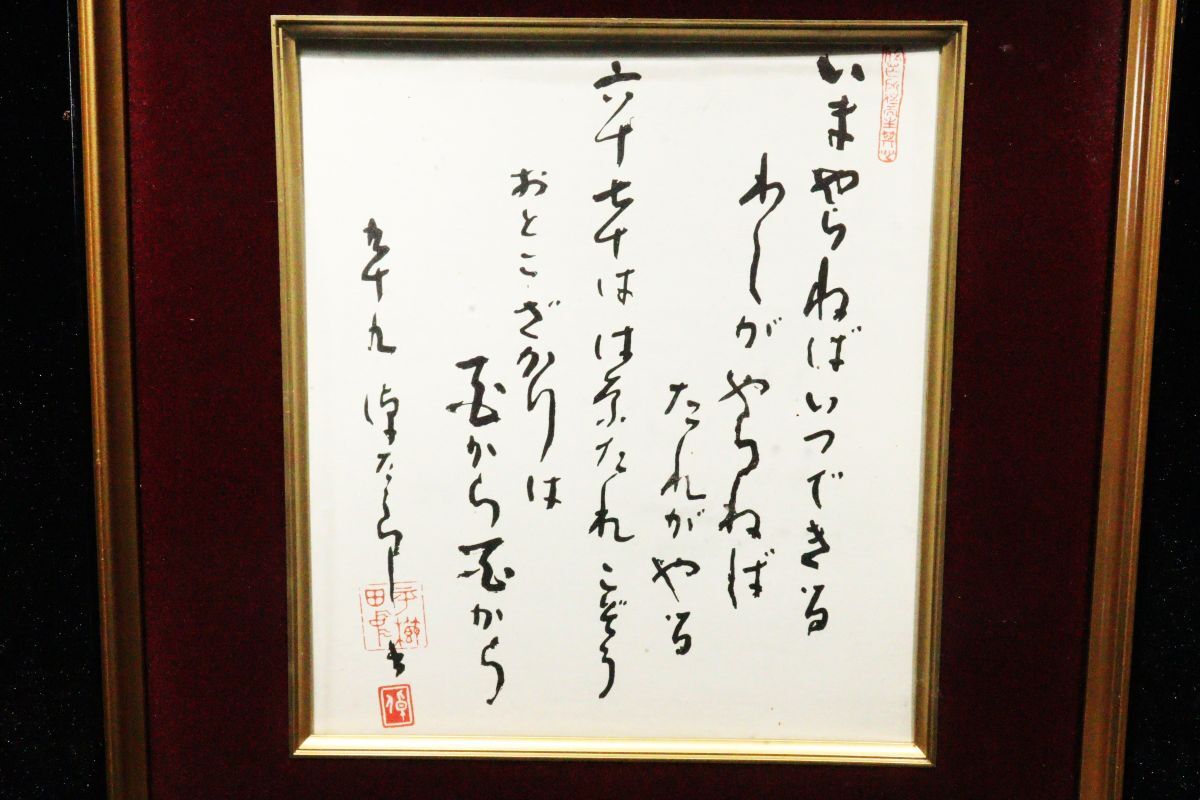 いまやらねばいつできる
わしがやらねば
たれがやる
六十七十ははなたれこぞう
おとこざかりは
百から百から
九十九 倬太郎
平櫛田中
倬